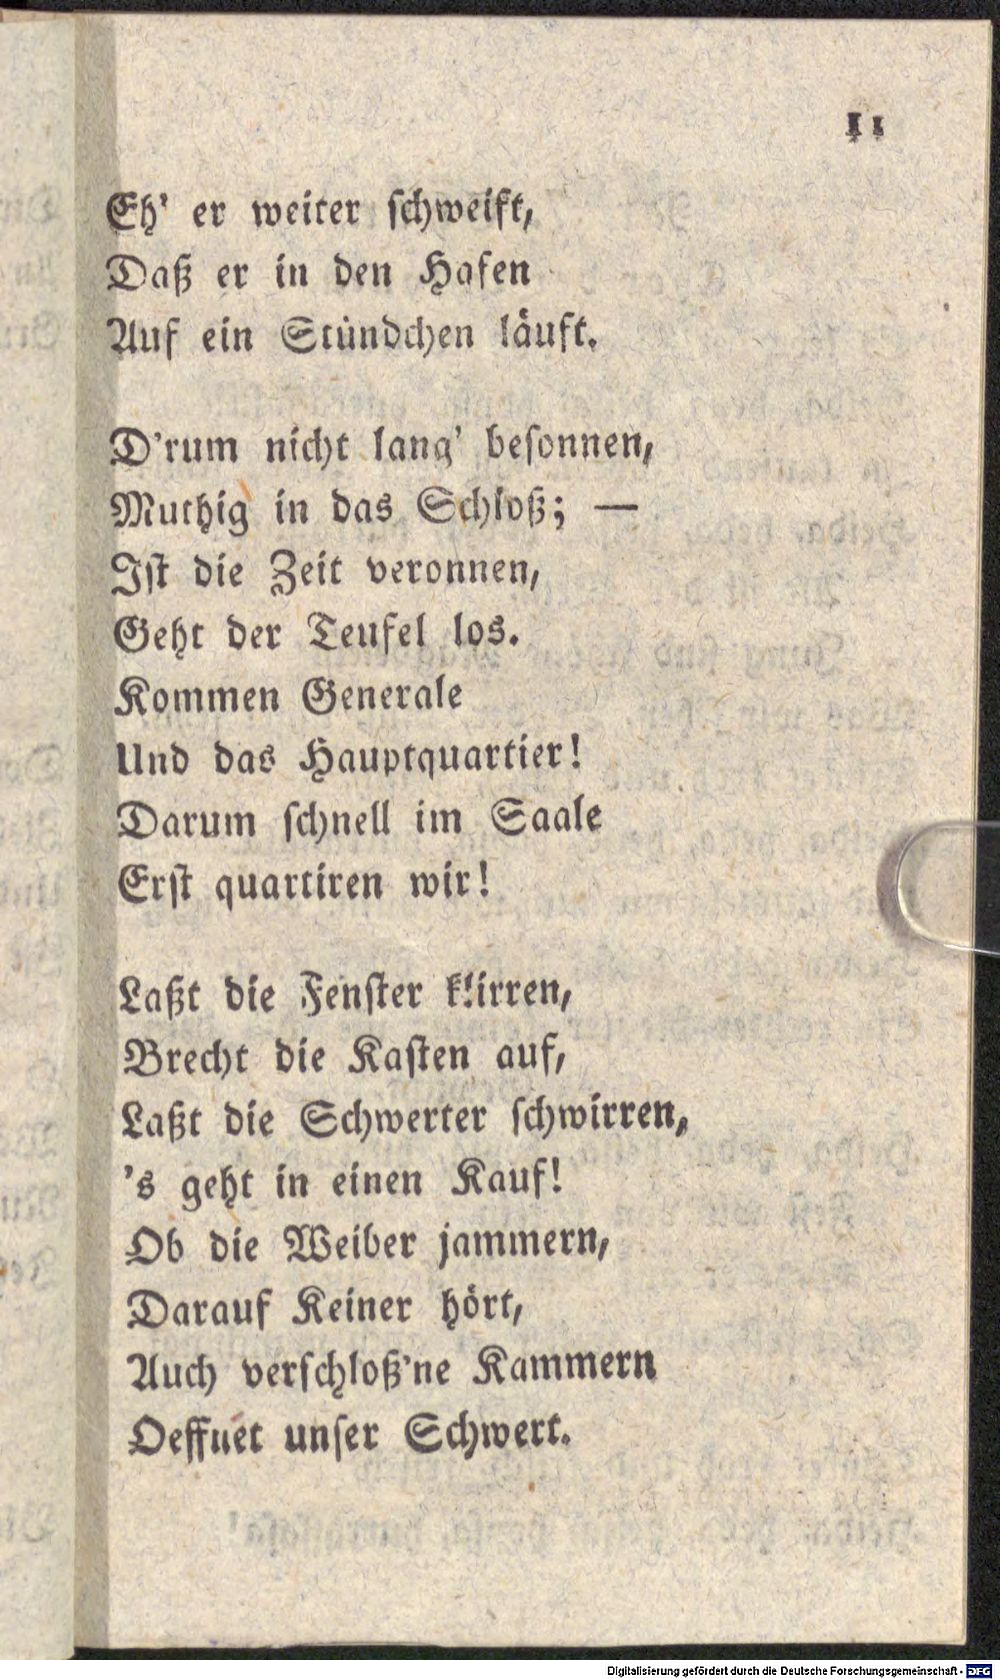 11
Eh' er weiter schweift,
Daß er in den Hafen
Auf ein Stündchen läuft.
D'rum nicht lang' besonnen,
Muthig in das Schloß; —
Ist die Zeit veronnen,
Geht der Teufel los.
Kommen Generale
Und das Hauptquartier!
Darum schnell im Saale
Erst quartiren wir!
Laßt die Fenster klirren,
Brecht die Kasten auf,
Laßt die Schwerter schwirren,
's geht in einen Kauf!
Ob die Weiber jammern,
Darauf Keiner hört,
Auch verschloß'ne Kammern
Oeffnet unser Schwert.
Digitalisierung gefördert durch die Deutsche Forschungsgemeinschaft - DFG